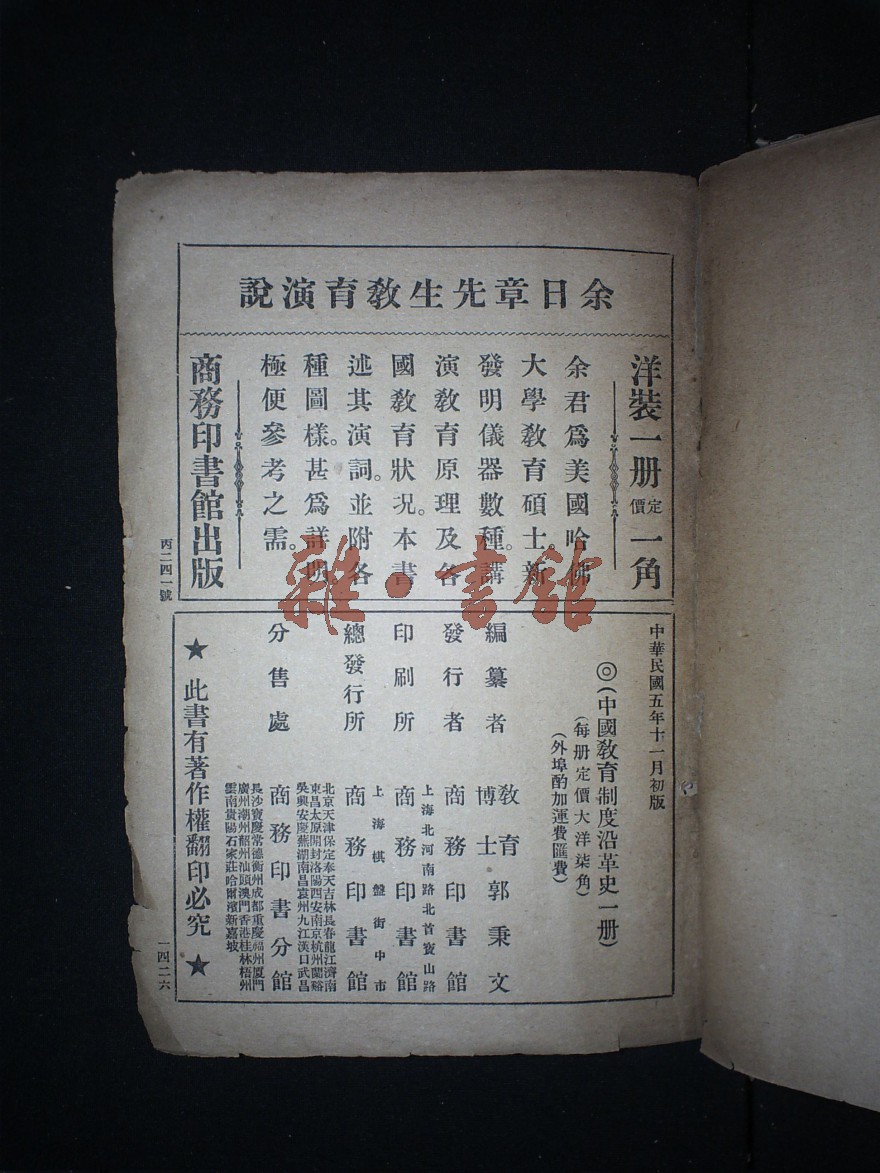 余日章先生教育演說
洋裝一册 定價 一角
余君爲美國哈佛
大學教育碩士。新
發明儀器數種。講
演教育原理及各
國教育狀况。本書
述其演詞。並附各
種圖樣。甚爲詳明。
極便參考之需。
商務印書館出版
丙二四一號
雜·書館
中華民國五年十一月初版
◎(中國教育制度沿革史一册)
(每册定價大洋柒角)
(外埠酌加運費匯費)
編纂者 教育博士 郭秉文
發行者 商務印書館
上海北河南路北首寶山路
印刷所 商務印書館
上海棋盤街中市
總發行所 商務印書館
北京天津保定奉天吉林長春龍江濟南
東昌太原開封洛陽西安南京杭州蘭谿
吳興安慶蕪湖南昌袁州九江漢口武昌
分售處 商務印書分館
長沙寶慶常德衡州成都重慶福州廈門
廣州潮州韶州汕頭澳門香港桂林梧州
雲南貴陽石家莊哈爾濱新嘉坡
★ 此書有著作權翻印必究 ★
一四二六